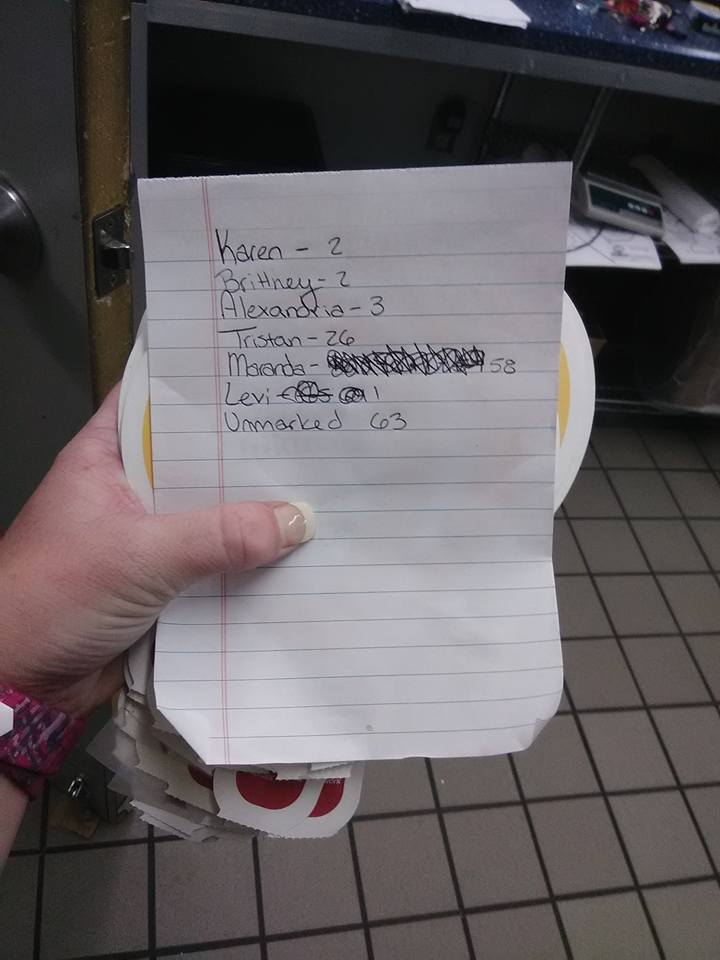 Karen - 2
Brittney - 2
Alexandria - 3
Tristan - 26
Maranda - 58
Levi - 1
Unmarked 63